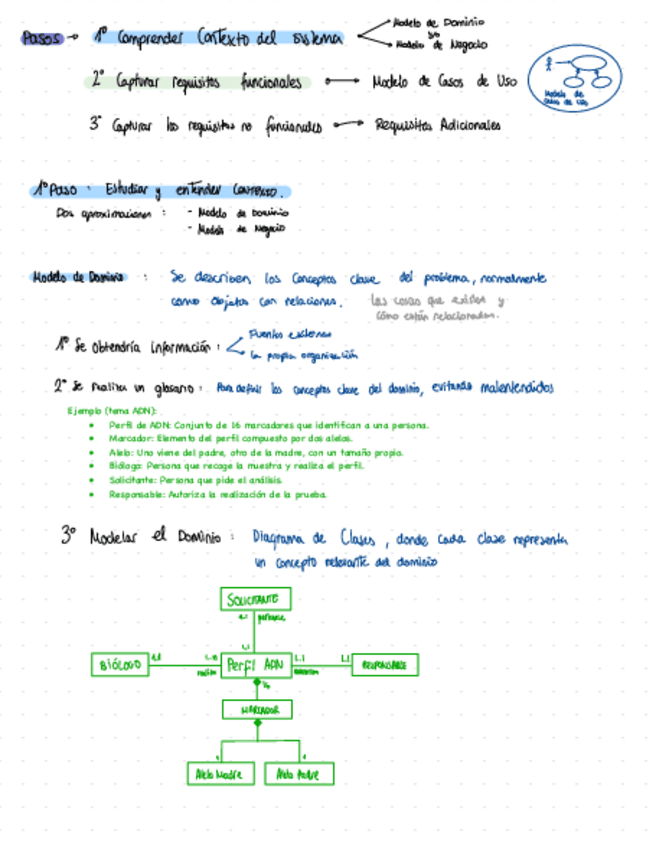 Pasos → 1º Comprender Contexto del sistema
Modelo de Dominio
y/o
Modelo de Negocio
2º Capturar requisitos funcionales → Modelo de Casos de Uso
Modelo de
Casos de Uso
3º Capturar los requisitos no funcionales → Requisitos Adicionales
1º Paso : Estudiar y entender Contexto.
Dos aproximaciones : - Modelo de Dominio
- Modelo de Negocio
Modelo de Dominio : Se describen los Conceptos clave del problema, normalmente
como objetos con relaciones. Las cosas que existen y
cómo están relacionadas.
1º Se Obtendría Información : Fuentes externas
La propia organización
2º Se realiza un glosario : Para definir los conceptos clave del dominio, evitando malentendidos
Ejemplo (tema ADN):
• Perfil de ADN: Conjunto de 16 marcadores que identifican a una persona.
• Marcador: Elemento del perfil compuesto por dos alelos.
• Alelo: Uno viene del padre, otro de la madre, con un tamaño propio.
• Biólogo: Persona que recoge la muestra y realiza el perfil.
• Solicitante: Persona que pide el análisis.
• Responsable: Autoriza la realización de la prueba.
3º Modelar el Dominio : Diagrama de Clases , donde cada clase representa
un concepto relevante del dominio
SOLICITANTE
pertenece
1..1
BIÓLOGO
Perfil ADN
1..1
1..1
RESPONSABLE
realiza
16
MARCADOR
1
1
Alelo Madre
Alelo Padre